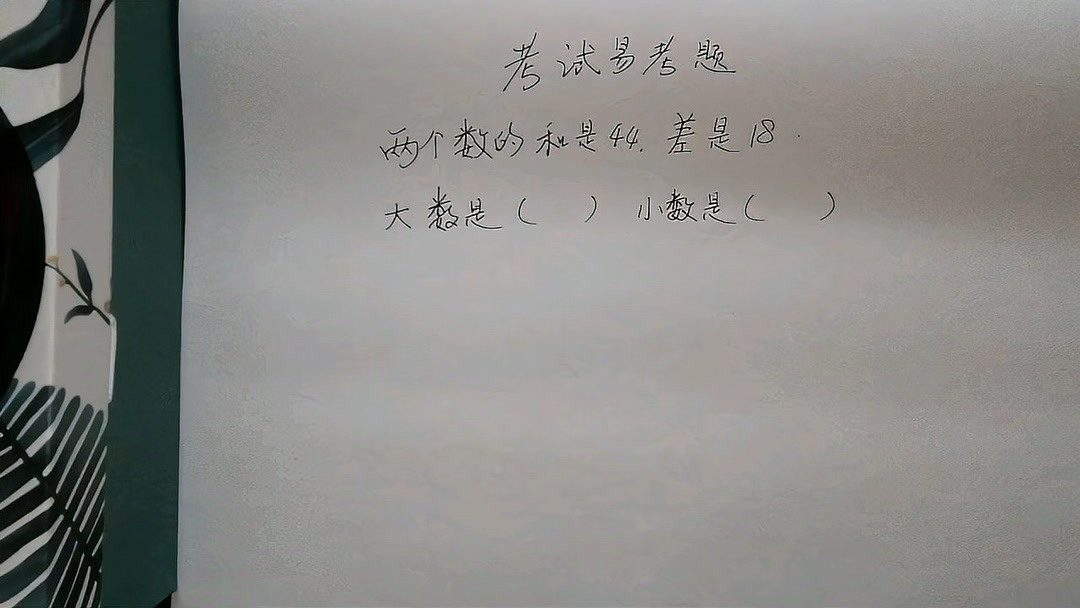 考试易考题
两个数的和是44. 差是18.
大数是（　）小数是（　）